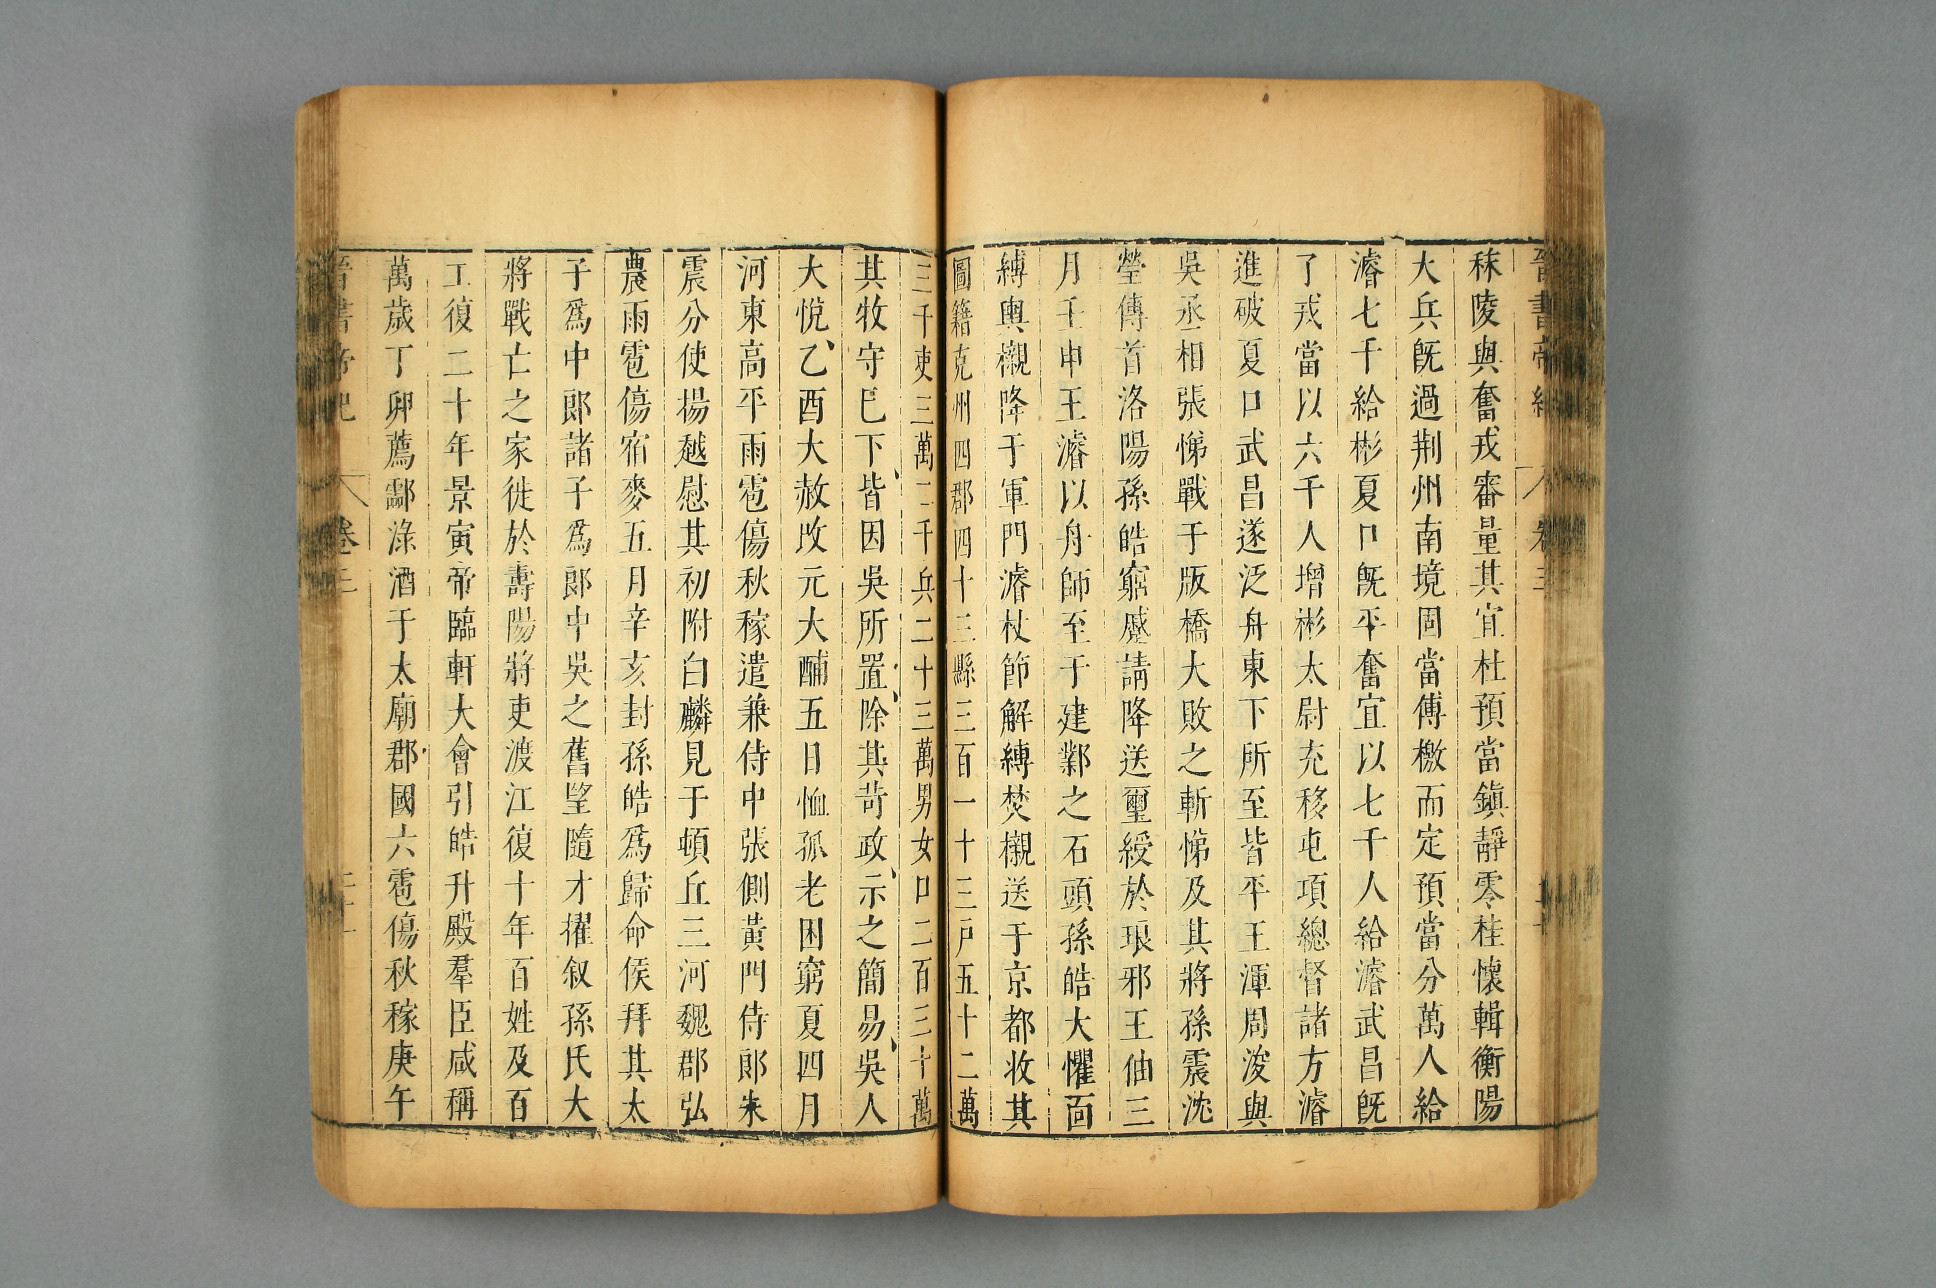 晉書帝紀 卷三
秣陵與奮戎審量其宜杜預當鎮靜零桂懷輯衡陽
大兵旣過荆州南境固當傳檄而定預當分萬人給
濬七千給彬夏口旣平奮宜以七千人給濬武昌旣
了戎當以六千人增彬太尉充移屯項總督諸方濬
進破夏口武昌遂泛舟東下所至皆平王渾周浚與
吳丞相張悌戰于版橋大敗之斬悌及其將孫震沈
瑩傳首洛陽孫皓窮蹙請降送璽綬於琅邪王伷三
月壬申王濬以舟師至于建鄴之石頭孫皓大懼面
縛輿櫬降于軍門濬杖節解縛焚櫬送于京都收其
圖籍克州四郡四十三縣三百一十三戶五十二萬
三千吏三萬二千兵二十三萬男女口二百三十萬
其牧守巳下皆因吳所置除其苛政示之簡易吳人
大悅乙酉大赦改元大酺五日恤孤老困窮夏四月
河東高平雨雹傷秋稼遣兼侍中張側黃門侍郎朱
震分使揚越慰其初附白麟見于頓丘三河魏郡弘
農雨雹傷宿麥五月辛亥封孫皓爲歸命侯拜其太
子爲中郎諸子爲郎中吳之舊望隨才擢叙孫氏大
將戰亡之家徙於壽陽將吏渡江復十年百姓及百
工復二十年景寅帝臨軒大會引皓升殿羣臣咸稱
萬歲丁卯薦酃淥酒于太廟郡國六雹傷秋稼庚午
晉書帝紀 卷三 二十一